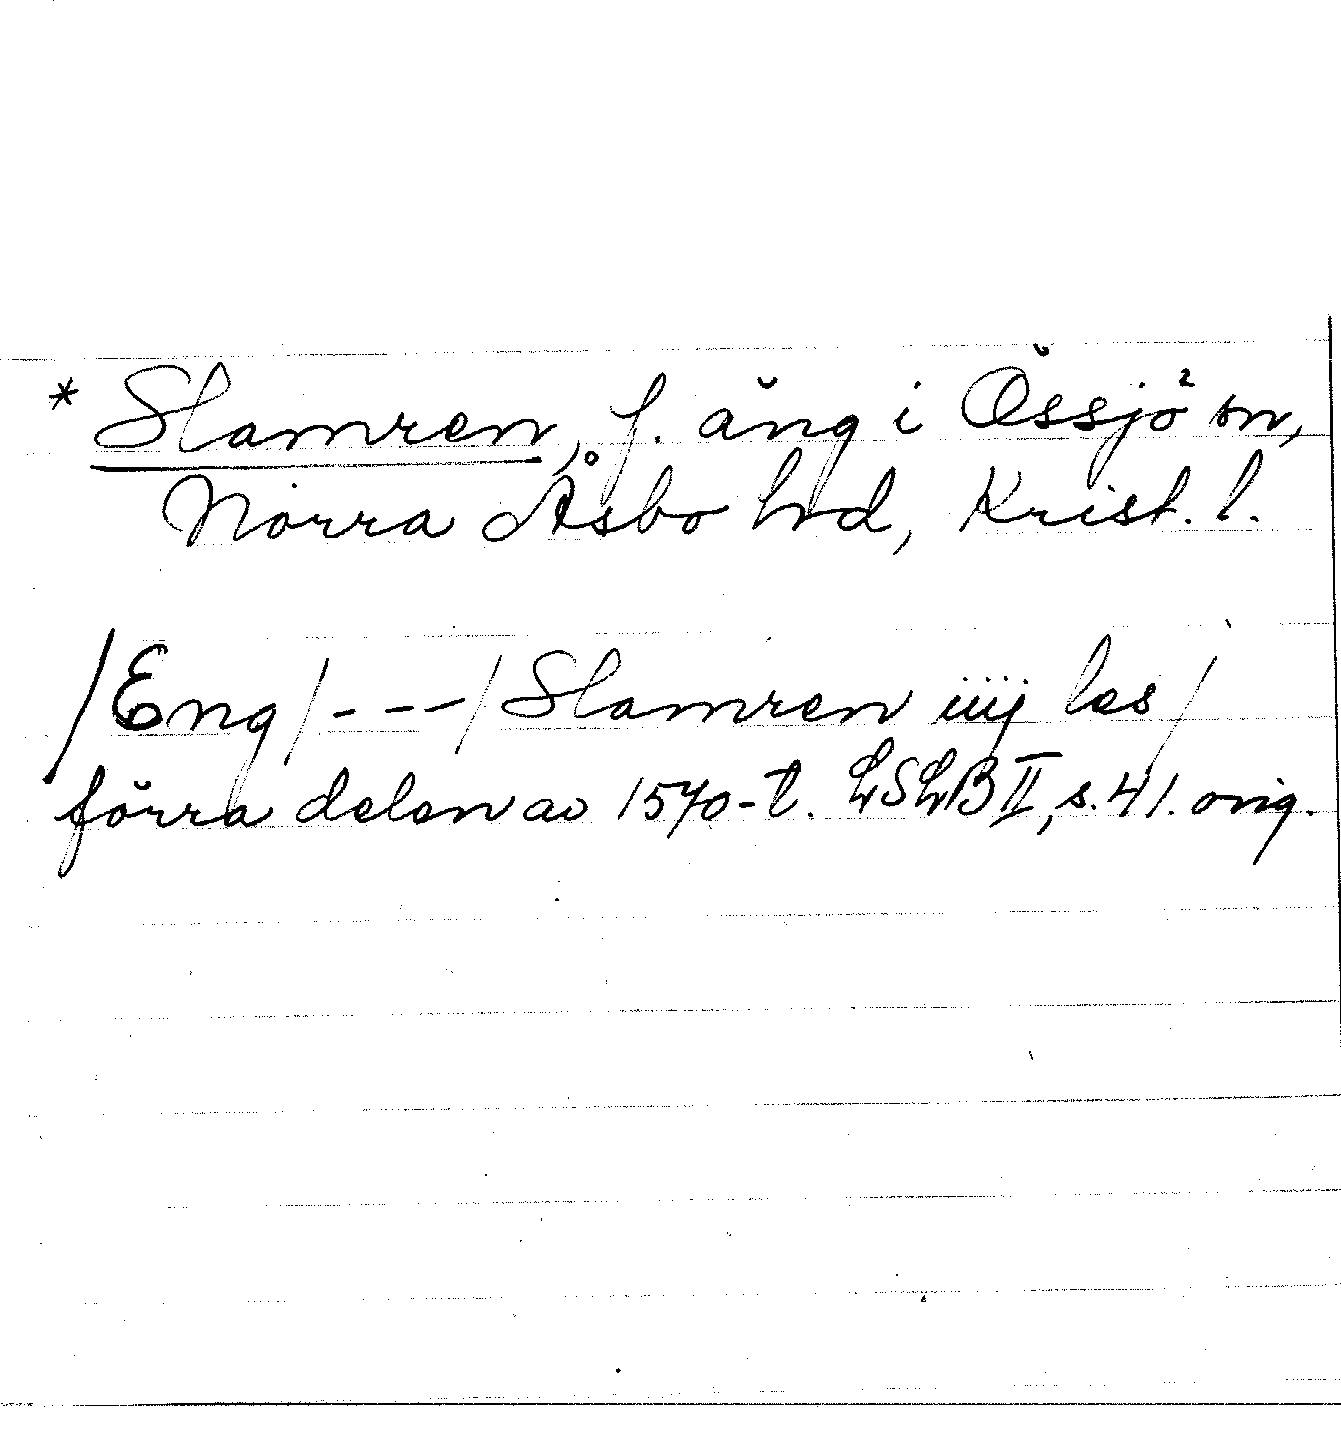 * Slamren, f. äng i Össjö² sn,
Norra Åsbo hrd, Krist. l.
/Eng/---/Slamren iiij les/
förra delen av 1570-t. LSLB II, s. 41. orig.